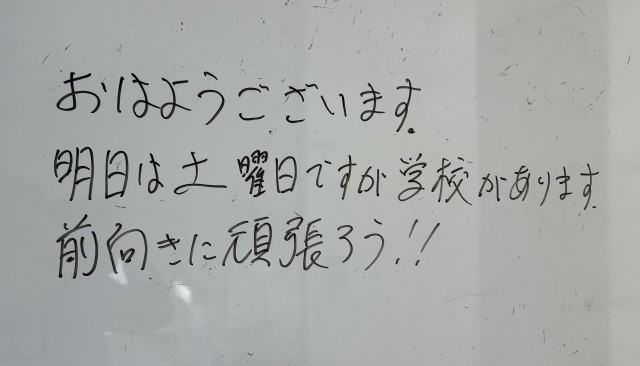 おはようございます.
明日は土曜日ですが学校があります.
前向きに頑張ろう!!